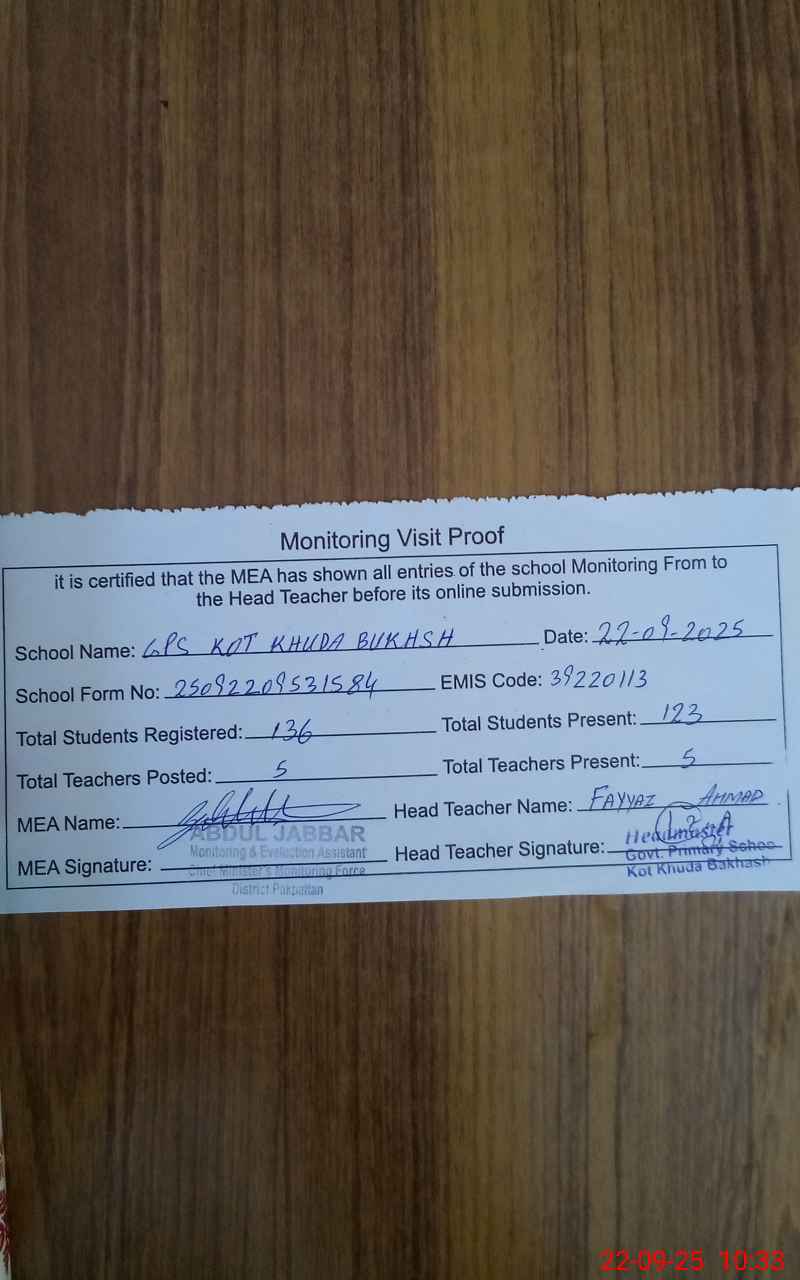 Monitoring Visit Proof
it is certified that the MEA has shown all entries of the school Monitoring From to
the Head Teacher before its online submission.
School Name: GPS KOT KHUDA BUKHSH Date: 22-09-2025
School Form No: 25092209531584 EMIS Code: 39220113
Total Students Registered: 136 Total Students Present: 123
Total Teachers Posted: 5 Total Teachers Present: 5
MEA Name: Head Teacher Name: FAYYAZ AHMAD
ABDUL JABBAR
Monitoring & Evaluction Assistant
Chief Minister's Monitoring Force
District Pakpattan
MEA Signature: Head Teacher Signature:
Headmaster
Govt. Primary Schoo
Kot Khuda Bakhash
22-09-25 10:33